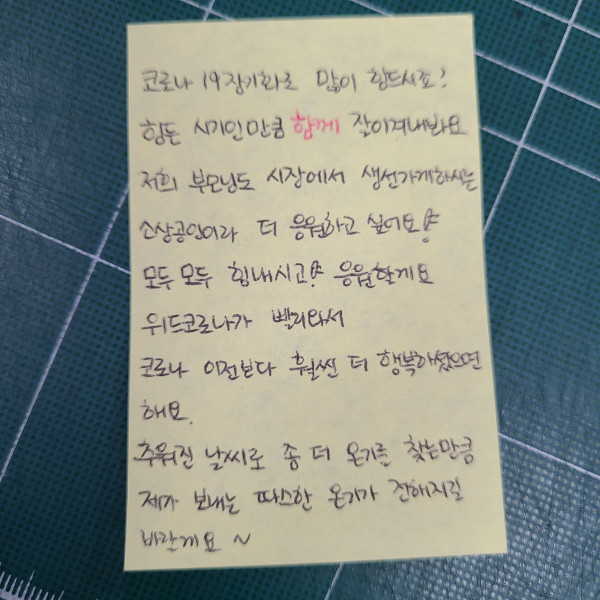 코로나 19장기화로 많이 힘드시죠?
힘든 시기인만큼 함께 잘이겨내봐요
저희 부모님도 시장에서 생선가게하시는
소상공인이라 더 응원하고 싶어요!
모두 모두 힘내시고! 응원할게요
위드코로나가 빨리와서
코로나 이전보다 훨씬 더 행복하셨으면
해요.
추워진 날씨로 좀 더 온기를 찾는만큼
제가 보내는 따스한 온기가 전해지길
바랄게요 ~